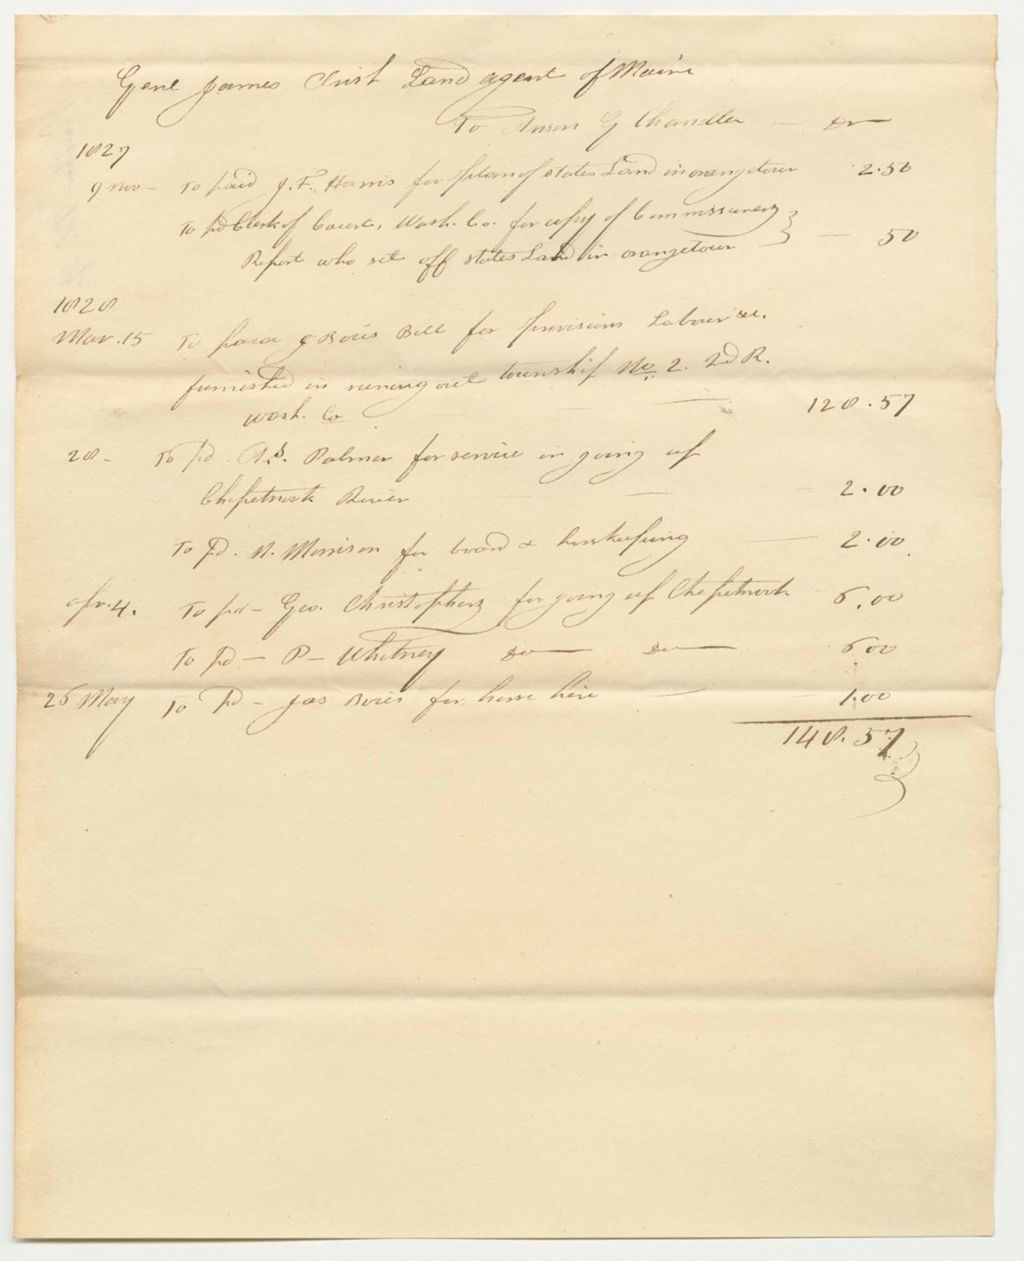 Genl James Irish Land agent of Maine
To Anson G Chandler — Dr
1827
9 nov - To paid J. F. Harris for plan of states Land in orangetown 2.50
To pd Clerk of Court, Wash. Co. for copy of Commissioners
Report who set off states Land in orangetown — 50
1828
Mar. 15 To paid J Bories Bill for provisions Labour &c.
furnished in running out township No 2. 2d R.
Wash. Co — — 128.57
28 - To pd. A.S. Palmer for service in going up
Chepetnook River — — 2.00
To pd. N. Morrison for board & horskeeping — 2.00
apr. 4. To pd - Geo. Christophers for going up Chepetnook 6.00
To pd - P - Whitney Do — Do — 6.00
26 May To Pd - Jas Bories for horse hire — 1.00
148.57